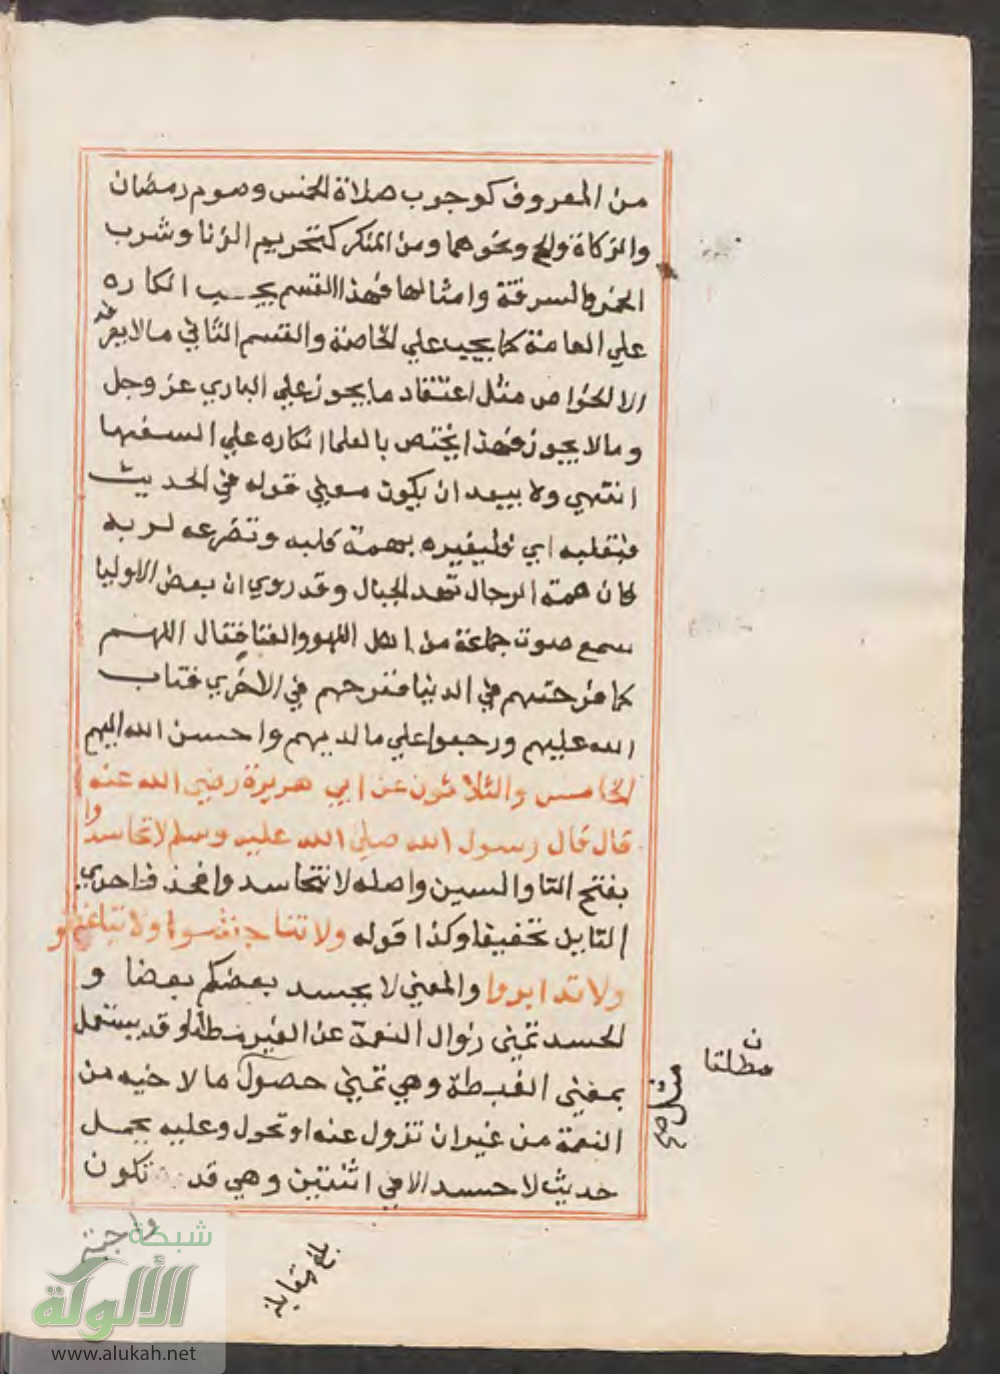 من المعروف كوجوب صلاة الخمس وصوم رمضان
والزكاة والحج ونحوهما ومن المنكر كتحريم الزنا وشرب
الخمر والسرقة وامثالها فهذا القسم يجب انكاره
علي العامة كما يجب علي الخاصة والقسم الثاني ما لا يعرفه
الا الخواص مثل اعتقاد ما يجوز علي الباري عز وجل
وما لا يجوز فهذا يختص بالعلما انكاره علي السفها
انتهي ولا يبعد ان يكون معني قوله في الحديث
فبقلبه اي فليغيره بهمة قلبه وتضرعه لربه
فان همة الرجال تهد الجبال وقد روي ان بعض الاوليا
سمع صوت جماعة من اهل اللهو والغنا فقال اللهم
كما فرحتهم في الدنيا ففرحهم في الاخري فتاب
الله عليهم ورجعوا علي ما لديهم واحسن الله اليهم
الخامس والثلاثون عن ابي هريرة رضي الله عنه
قال قال رسول الله صلي الله عليه وسلم لا تحاسدوا
بفتح التا والسين واصله لا تتحاسدوا فحذف احدي
التاين تخفيفا وكذا قوله ولا تناجشوا ولا تباغضو
ولا تدابروا والمعني لا يحسد بعضكم بعضا و
الحسد تمني زوال النعمة عن الغير مطلقا وقد يستعمل
بمعني الغبطة وهي تمني حصول ما لاخيه من
النعمة من غير ان تزول عنه او تحول وعليه يحمل
حديث لا حسد الا في اثنتين وهي قد تكون
ن
مطلقا
مثل صح
واجبة
بلغ مقابلة
شبكة
الألوكة
www.alukah.net